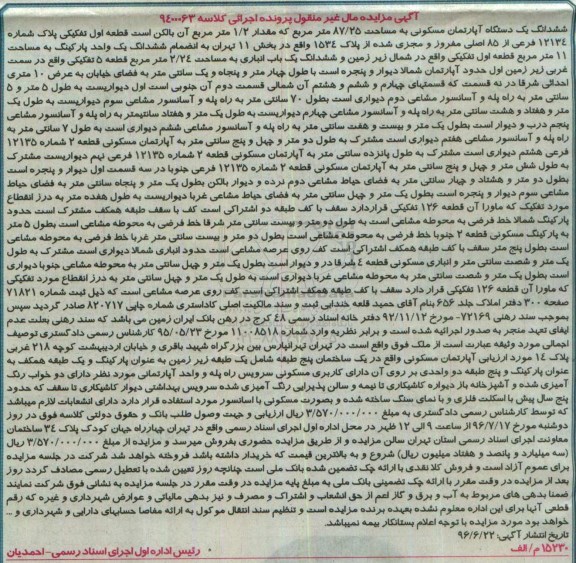 آگهی مزایده مال غیر منقول پرونده اجرائی کلاسه ۹۴۰۰۰۶۳
ششدانگ یک دستگاه آپارتمان مسکونی به مساحت ۸۷/۲۵ متر مربع که مقدار ۱/۲ متر مربع آن بالکن است قطعه اول تفکیکی پلاک شماره
۱۲۱۳۴ فرعی از ۸۵ اصلی مفروز و مجزی شده از پلاک ۱۵۳۴ واقع در بخش ۱۱ تهران به انضمام ششدانگ یک واحد پارکینگ به مساحت
۱۱ متر مربع قطعه اول تفکیکی واقع در شمال زیر زمین و ششدانگ یک باب انباری به مساحت ۲/۲۴ متر مربع قطعه ۵ تفکیکی واقع در سمت
غربی زیر زمین اول حدود آپارتمان شمالا دیوار و پنجره است با طول چهار متر و پنجاه و یک سانتی متر به فضای خیابان به عرض ۱۰ متری
احداثی شرقا در نه قسمت که قسمتهای چهارم و ششم و هشتم آن شمالی قسمت دوم آن جنوبی است اول دیواریست به طول ۵ متر و ۵
سانتی متر به راه پله و آسانسور مشاعی دوم دیواری است بطول ۷۰ سانتی متر به راه پله و آسانسور مشاعی سوم دیواریست به طول یک
متر و هفتاد و هشت سانتی متر به راه پله و آسانسور مشاعی چهارم دیواریست به طول یک متر و هفتاد سانتیمتر به راه پله و آسانسور مشاعی
پنجم درب و دیوار است بطول یک متر و بیست و هفت سانتی متر به راه پله و آسانسور مشاعی ششم دیواری است به طول ۷ سانتی متر به
راه پله و آسانسور مشاعی هفتم دیواری است مشترک به طول دو متر و چهل و پنج سانتی متر به آپارتمان مسکونی قطعه ۲ شماره ۱۲۱۳۵
فرعی هشتم دیواری است مشترک به طول پانزده سانتی متر به آپارتمان مسکونی قطعه ۲ شماره ۱۲۱۳۵ فرعی نهم دیواریست مشترک
به طول شش متر و چهل و پنج سانتی متر به آپارتمان مسکونی قطعه ۲ شماره ۱۲۱۳۵ فرعی جنوبا در سه قسمت اول دیوار و پنجره است
بطول دو متر و هشتاد و چهار سانتی متر به فضای حیاط مشاعی دوم نرده و دیوار بالکن بطول یک متر و پنجاه سانتی متر به فضای حیاط
مشاعی سوم دیوار و پنجره است بطول یک متر و چهل سانتی متر به فضای حیاط مشاعی غربا دیواریست به طول هفده متر به درز انقطاع
مورد تفکیک که ماورا آن قطعه ۱۲۶ تفکیکی قراردارد سقف با کف طبقه دو اشتراکی است کف با سقف طبقه همکف مشترک است حدود
پارکینگ شمالا خط فرضی به محوطه مشاعی است به طول دو متر و بیست سانتی متر شرقا خط فرضی به محوطه مشاعی است بطول ۵ متر
به پارکینگ مسکونی قطعه ۲ جنوبا خط فرضی به محوطه مشاعی است بطول دو متر و بیست سانتی متر غربا خط فرضی به محوطه مشاعی
است بطول پنج متر سقف با کف طبقه همکف اشتراکی است کف روی عرصه مشاعی است حدود انباری شمالا دیواری است مشترک به طول
یک متر و شصت سانتی متر و انباری مسکونی قطعه ۴ شرقا در و دیوار است بطول یک متر و چهل سانتی متر به محوطه مشاعی جنوبا دیواری
است بطول یک متر و شصت سانتی متر به محوطه مشاعی غربا دیواری است به طول یک متر و چهل سانتی متر به درز انقطاع مورد تفکیکی
که ماورا آن قطعه ۱۲۶ تفکیکی قرار دارد سقف با کف طبقه همکف اشتراکی است کف روی عرصه مشاعی است که ذیل ثبت شماره ۷۱۸۲۱
صفحه ۳۰۰ دفتر املاک جلد ۶۵۶ بنام آقای حمید قلعه خندابی ثبت و سند مالکیت اصلی کاداستری شماره چاپی ۸۲۰۷۱۷ صادر گردید سپس
بموجب سند رهنی ۷۲۱۶۹- مورخ ۹۲/۱۱/۱۲ دفتر خانه اسناد رسمی ۴۸ کرج در رهن بانک ایران زمین می باشد که سند رهنی بعلت عدم
ایفای تعهد منجر به صدور اجرائیه شده است و برابر نظریه وارد شماره ۱۱۰۰۸۵۱۸ مورخ ۹۵/۰۵/۲۳ کارشناس رسمی دادگستری توصیف
اجمالی مورد وثیقه عبارت است از ملک فوق واقع است در تهران تهرانپارس بین بزرگراه شهید باقری و خیابان اردیبهشت کوچه ۲۱۸ غربی
پلاک ۱۴ مورد ارزیابی آپارتمان مسکونی واقع در یک ساختمان پنج طبقه شامل یک طبقه زیر زمین به عنوان پارکینگ و یک طبقه همکف به
عنوان پارکینگ و پنج طبقه دو واحدی بر روی آن دارای کاربری مسکونی سرویس راه پله و واحد آپارتمانی مورد نظر دارای دو خواب رنگ
آمیزی شده و آشپزخانه باز دیواره کاشیکاری تا نیمه و سالن پذیرایی رنگ آمیزی شده سرویس بهداشتی دیوار کاشیکاری تا سقف که حدود
پنج سال پیش با اسکلت فلزی و با نمای سنگ ساخته شده و بصورت مسکونی با آسانسور مورد استفاده قرار دارد دارای انشعابات لازم میباشد
که توسط کارشناس رسمی دادگستری به مبلغ ۳/۵۷۰/۰۰۰/۰۰۰ ریال ارزیابی و جهت وصول طلب بانک و حقوق دولتی کلاسه فوق در روز
دوشنبه مورخ ۹۶/۷/۱۷ از ساعت ۹ الی ۱۲ ظهر در محل اداره اول اجرای اسناد رسمی واقع در تهران چهارراه جهان کودک پلاک ۳۴ ساختمان
معاونت اجرای اسناد رسمی استان تهران سالن مزایده و از طریق مزایده حضوری بفروش میرسد و مزایده از مبلغ ۳/۵۷۰/۰۰۰/۰۰۰ ریال
(سه میلیارد و پانصد و هفتاد میلیون ریال) شروع و به بالاترین قیمت که خریدار داشته باشد فروخته خواهد شد شرکت در جلسه مزایده
برای عموم آزاد است و فروش کلا نقدی با ارائه چک تضمین شده بانک ملی است چنانچه روز تعیین شده با تعطیل رسمی مصادف گردد روز
بعد از مزایده در وقت مقرر با ارائه چک تضمینی بانک ملی به مبلغ پایه مزایده در وقت مقرر در جلسه مزایده به نشانی فوق شرکت نمایند
ضمنا بدهی های مربوط به آب و برق و گاز اعم از حق انشعاب و اشتراک و مصرف و نیز بدهی مالیاتی و عوارض شهرداری و غیره که رقم
قطعی آنها برای این اداره معلوم نشده بعهده برنده مزایده است و تنظیم سند انتقال موکول به ارائه مفاصا حسابهای دارایی و شهرداری و ...
خواهد بود مورد مزایده با توجه اعلام بستانکار بیمه نمیباشد.
تاریخ انتشار آگهی: ۹۶/۶/۲۲
۱۵۲۳۰ م / الف رئیس اداره اول اجرای اسناد رسمی - احمدیان